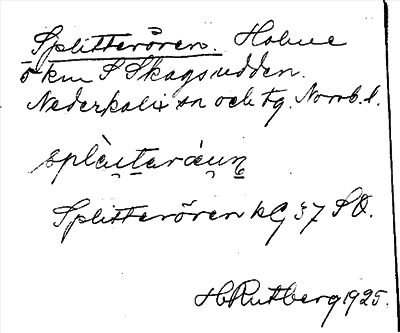 Splitterören. Holme
5 km S Skagsudden.
Nederkalix sn och tg. Norrb. l.
Splitterören kG 37 SO.
H Rutberg 1925.